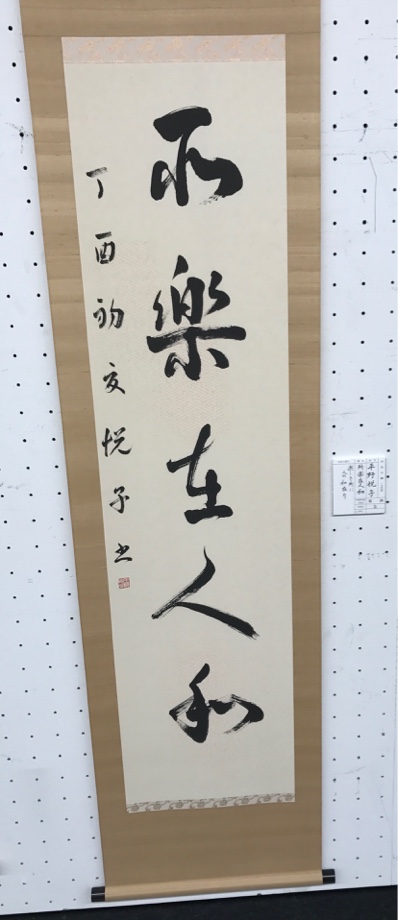 所樂在人和
丁酉初夏悦子書
平野悦子
所樂在人和